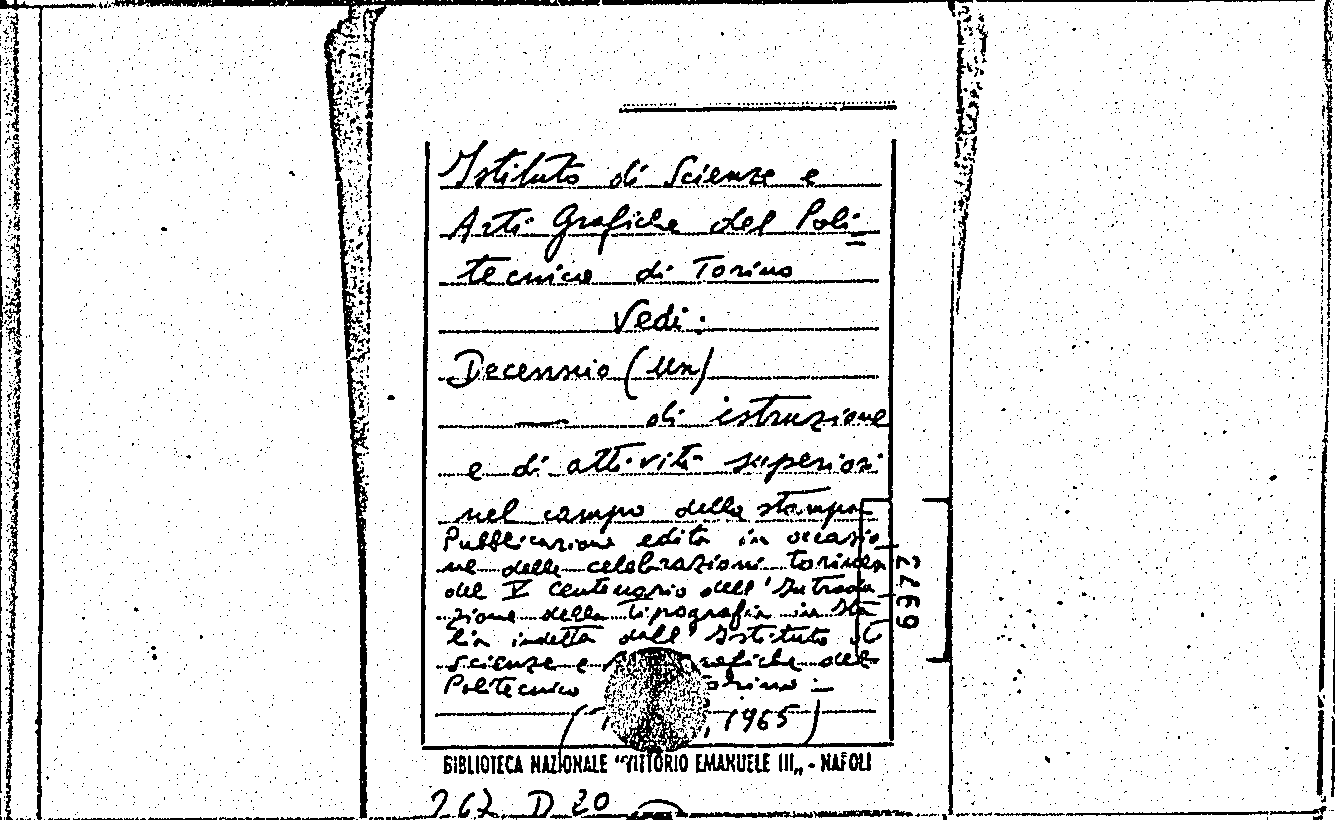 Istituto di Scienze e
Arti Grafiche del Poli=
tecnico di Torino
Vedi:
Decennio (Un)
— di istruzione
e di attività superiori
nel campo della stampa
Pubblicazione edita in occasio
ne delle celebrazioni torinesi
del V Centenario dell'Introdu
zione della tipografia in Ita
lia indetta dall'Istituto di
Scienze e grafiche del
Politecnico Torino =
( , 1965)
BIBLIOTECA NAZIONALE "VITTORIO EMANUELE III„ - NAPOLI
262 D 20
6977